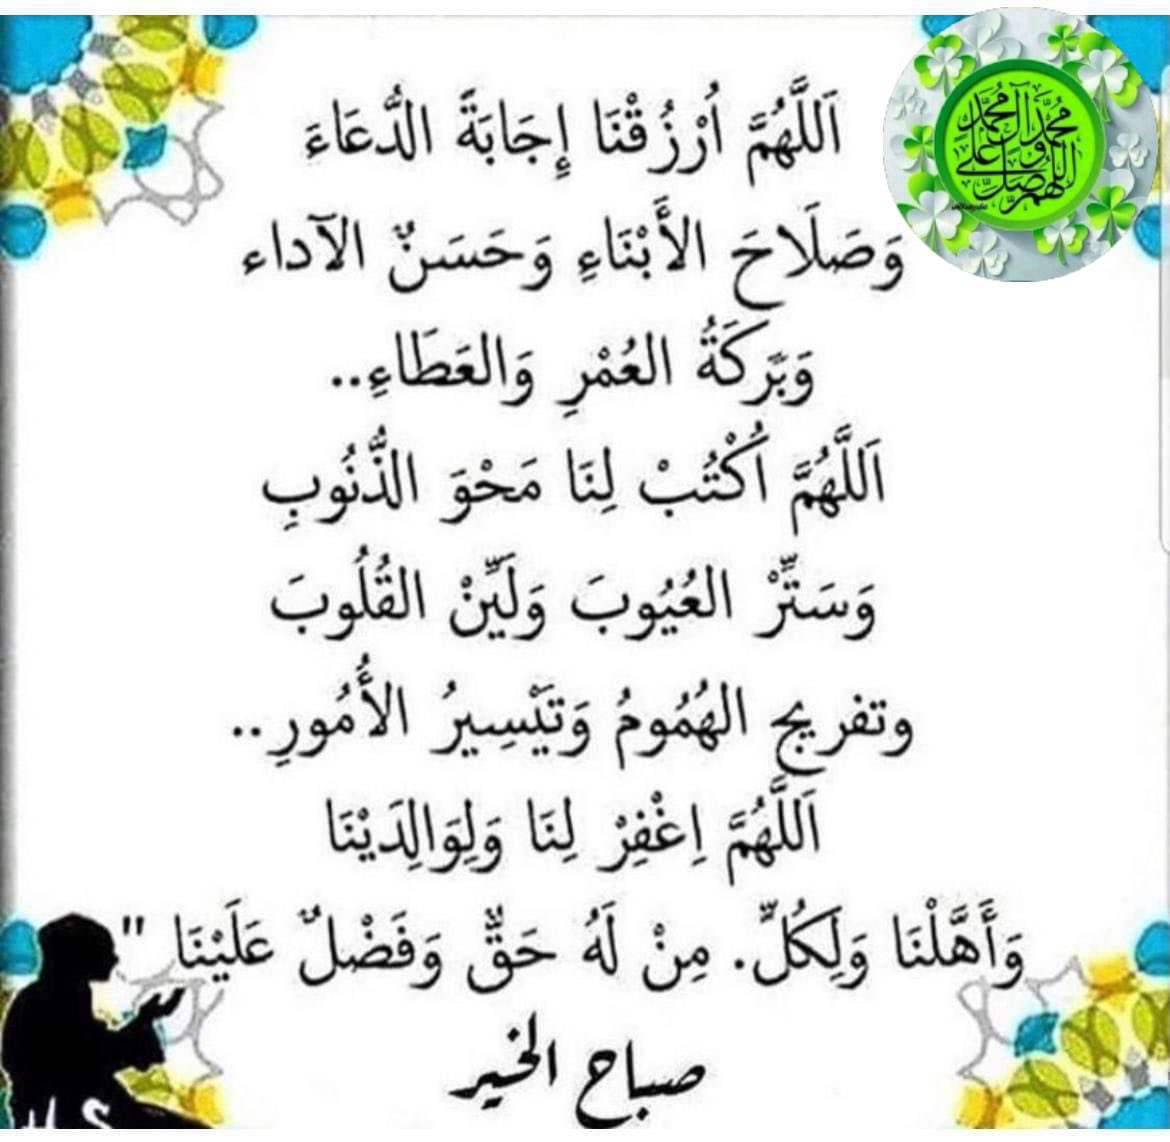 اَللَّهُمَّ اُرْزُقْنَا إِجَابَةً الدُّعَاءَ
وَصَلَاحَ الأَبْنَاءِ وَحَسَنٌ الآداء
وَبَرَكَةُ العُمْرِ وَالعَطَاءِ..
اَللَّهُمَّ اُكْتُبْ لِنَا مَحْوَ الذُّنُوبِ
وَسَتِّرْ العُيُوبَ وَلَيِّنْ القُلُوبَ
وتفريج الهُمُومُ وَتَيْسِيرُ الأُمُورِ..
اَللَّهُمَّ اِغْفِرْ لِنَا وَلِوَالِدَيْنَا
وَأَهَّلْنَا وَلِكُلِّ. مِنْ لَهُ حَقٌّ وَفَضْلٌ عَلَيْنَا "
صباح الخير
اللهم صل على
محمد وآل محمد